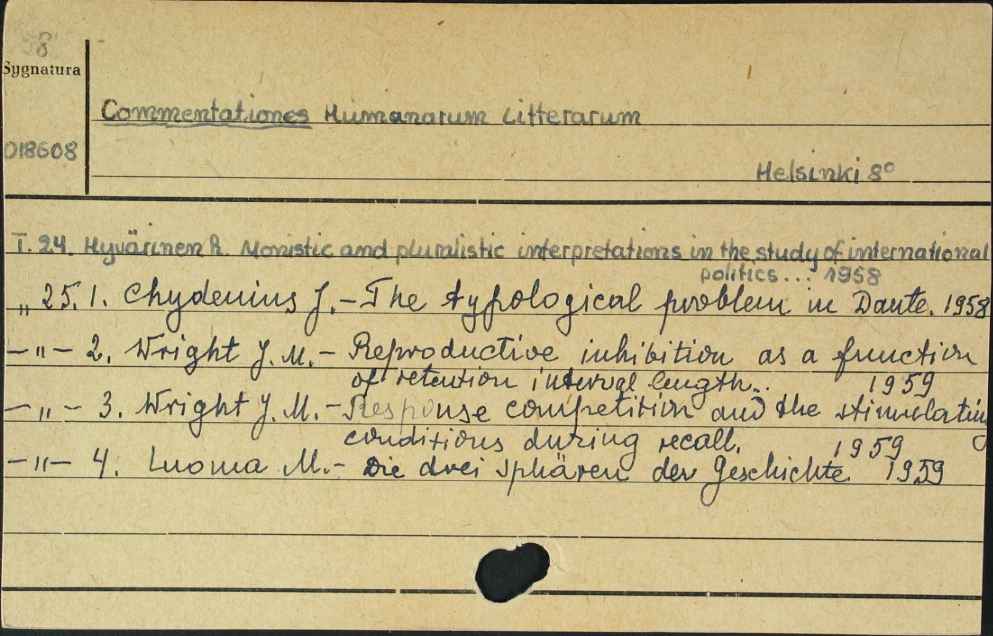 8
Sygnatura
Commentationes Humanarum Litterarum
018608
Helsinki 8°
T. 24. Hyvärinen R. Monistic and pluralistic interpretations in the study of international
politics... 1958
„ 25.1. Chydenius J. - The typological problem in Dante. 1958
-„- 2. Wright J. M. - Reproductive inhibition as a function
of retention interval length.. 1959
-„- 3. Wright J. M. - Response competition and the stimulating
conditions during recall. 1959
-„- 4. Luoma M. - Die drei Sphären der Geschichte 1959